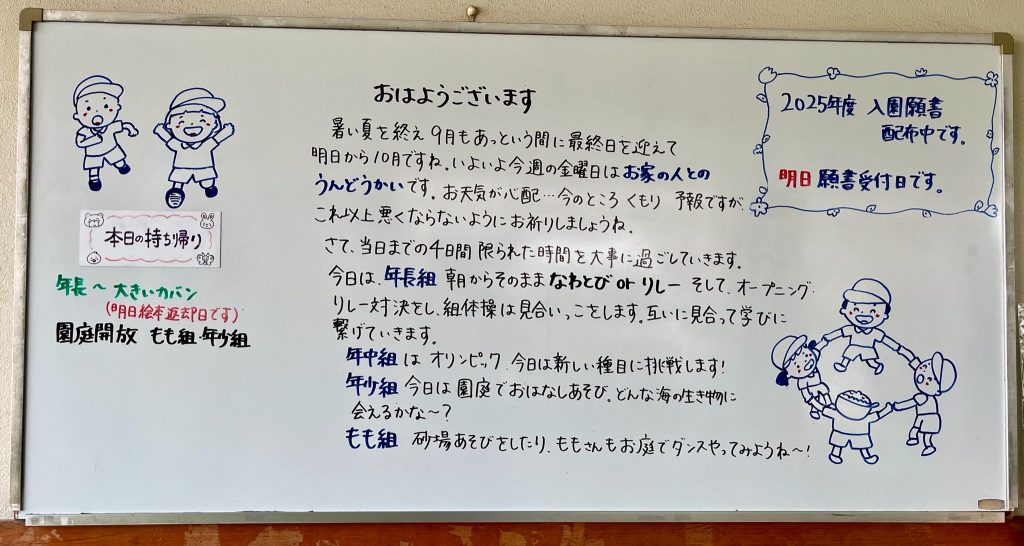 おはようございます
暑い夏を終え 9月もあっという間に最終日を迎えて
明日から10月ですね。いよいよ今週の金曜日はお家の人との
うんどうかいです。お天気が心配…今のところ くもり 予報ですが
これ以上悪くならないようにお祈りしましょうね。
さて、当日までの4日間 限られた時間を大事に過ごしていきます。
今日は、年長組 朝からそのまま なわとび or リレー そして、オープニング
リレー対決をし、組体操は見合いっこをします。互いに見合って学びに
繋げていきます。
年中組 は オリンピック、今日は新しい種目に挑戦します!
年少組 今日は 園庭でおはなしあそび。どんな海の生き物に
会えるかな〜?
もも組 砂場あそびをしたり、ももさんもお庭でダンスやってみようね〜!
本日の持ち帰り
年長 〜 大きいカバン
(明日絵本返却日です)
園庭開放 もも組・年少組
2025年度 入園願書
配布中です。
明日 願書受付日です。